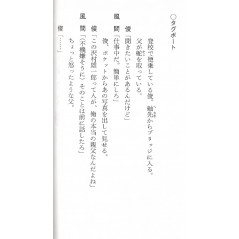 ○タグボート
登校で便乗している俊、舳先からブリッジに入る。
父が舵を取っている。
俊「聞きたいことがあるんだけど」
風間「仕事中だ。簡単にしろ」
俊、ポケットからあの写真を出して見せる。
俊「この沢村雄一郎って人が、俺の本当の親父なんだよね」
風間「(不機嫌そうに)そのことは前に話したろ」
ちょっと怒ったような父。
俊「……」